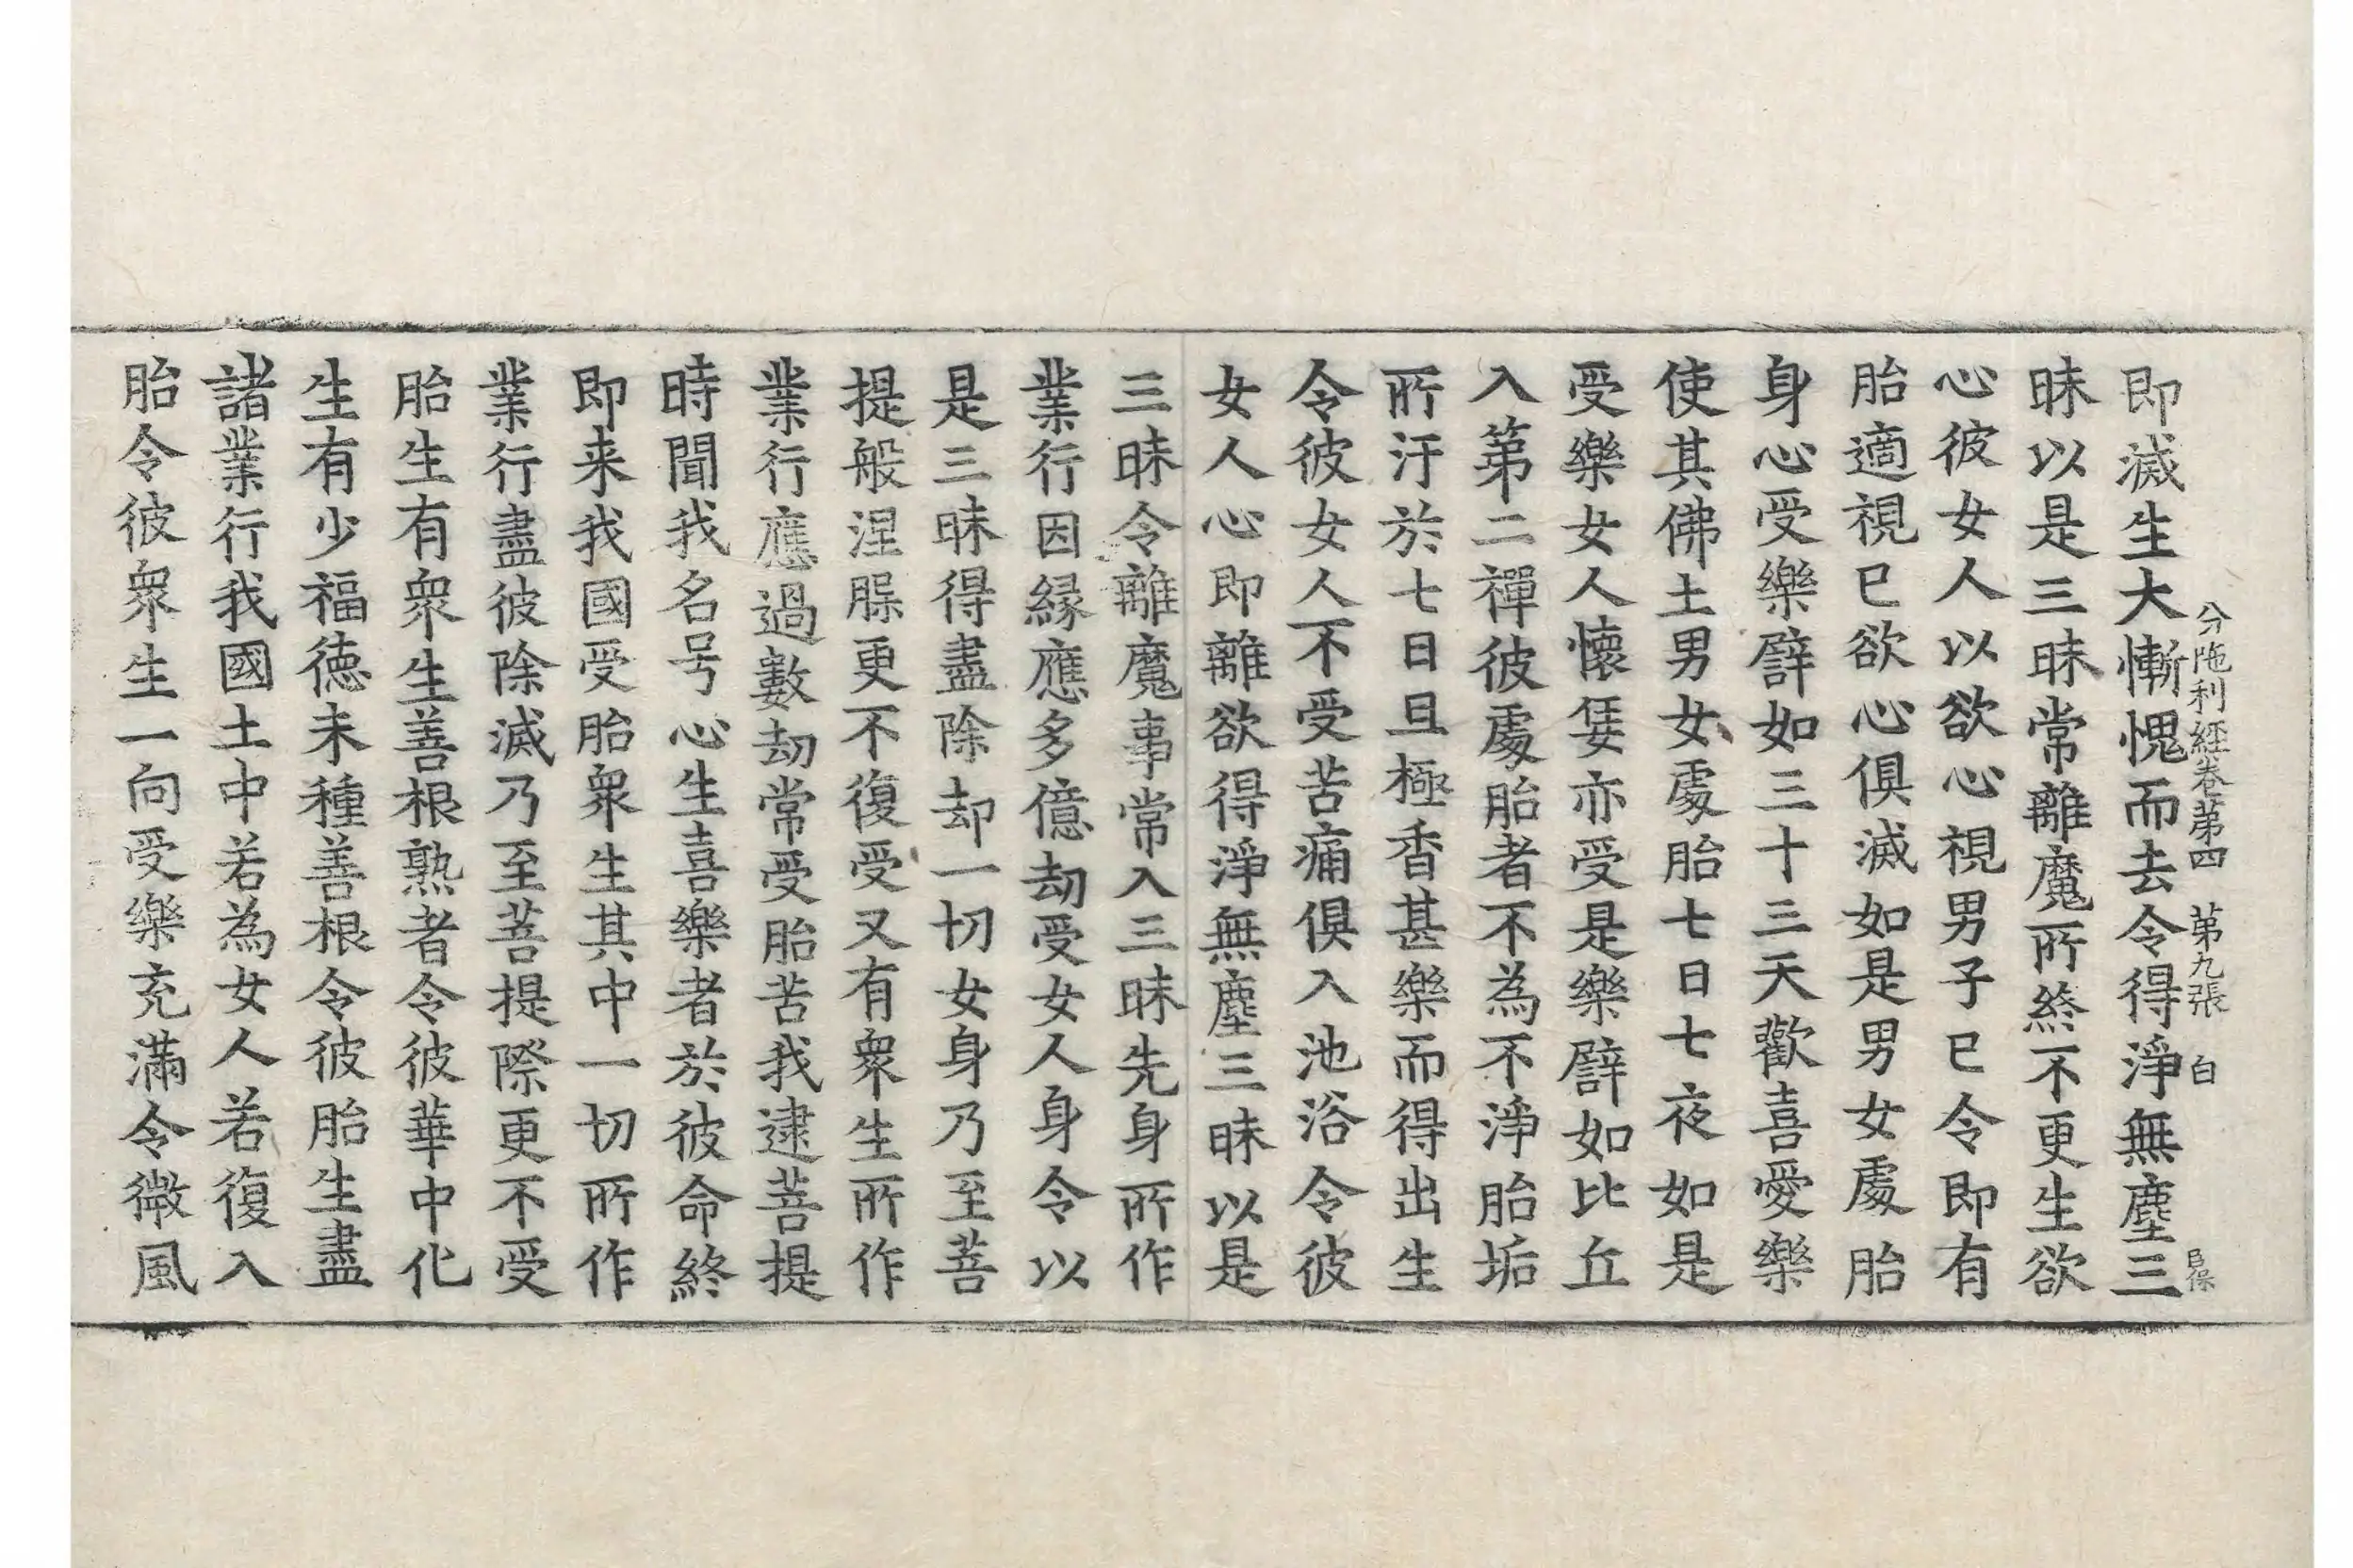 分陁利經卷苐四 苐九張 白
即滅生大慚愧而去令得淨無塵三
昧以是三昧常離魔所終不更生欲
心彼女人以欲心視男子已令即有
胎適視已欲心俱滅如是男女處胎
身心受樂譬如三十三天歡喜愛樂
使其佛土男女處胎七日七夜如是
受樂女人懷妊亦受是樂譬如比丘
入第二禪彼處胎者不為不淨胎垢
所汙於七日旦極香甚樂而得出生
令彼女人不受苦痛俱入池浴令彼
女人心即離欲得淨無塵三昧以是
三昧令離魔事常入三昧先身所作
業行因縁應多億劫受女人身令以
是三昧得盡除却一切女身乃至菩
提般涅槃更不復受又有衆生所作
業行應過數劫常受胎苦我逮菩提
時聞我名号心生喜樂者於彼命終
即来我國受胎衆生其中一切所作
業行盡彼除滅乃至菩提際更不受
胎生有衆生善根熟者令彼華中化
生有少福德未種善根令彼胎生盡
諸業行我國土中若為女人若復入
胎令彼衆生一向受樂充滿令微風